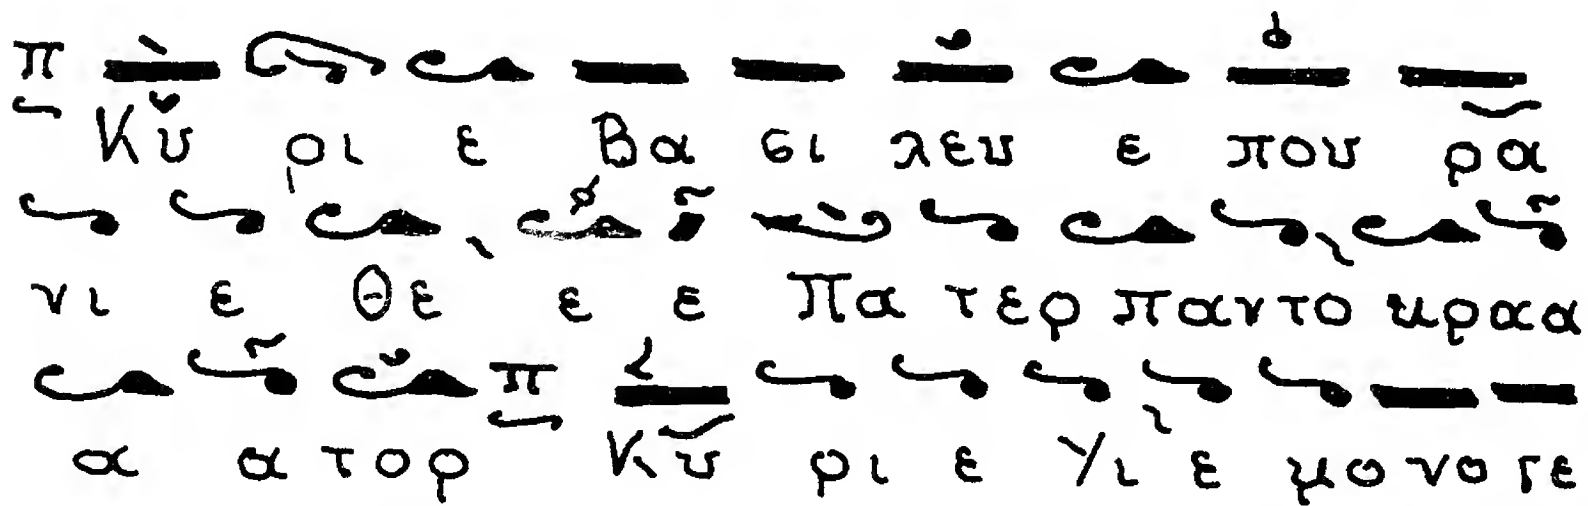 π Κύ ρι ε Βα σι λευ ε που ρα
νι ε Θε ε ε Πα τερ παντο κραα
α α τορ π Κύ ρι ε Υι ε μονογε